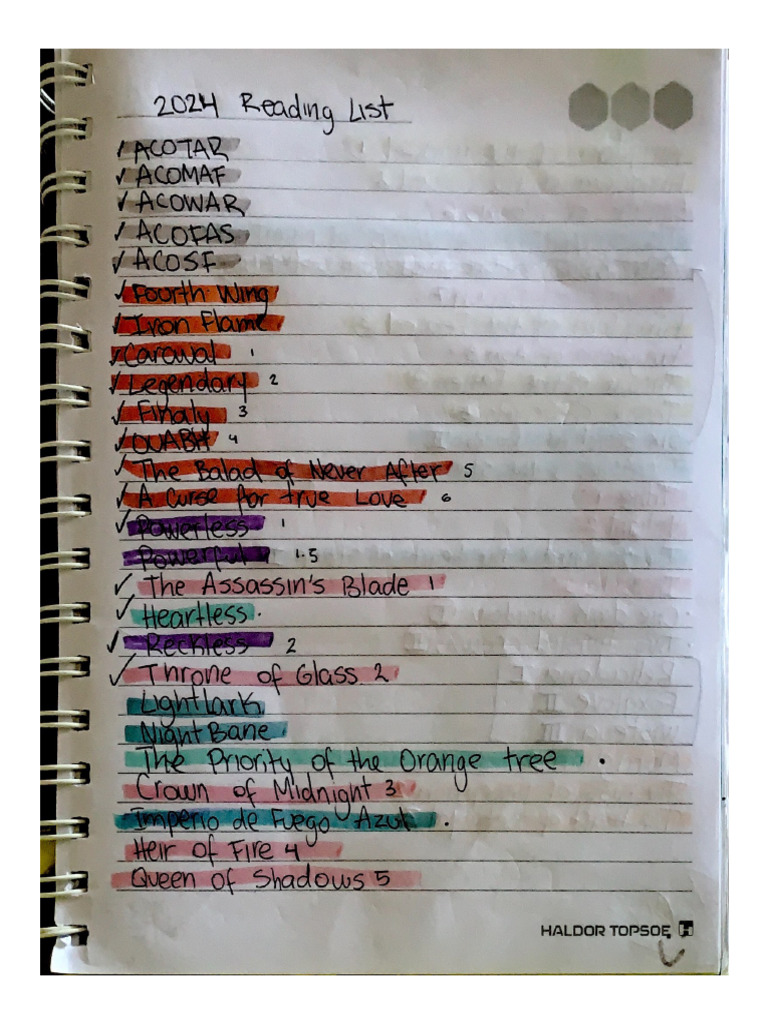 2024 Reading List
✓ ACOTAR
✓ ACOMAF
✓ ACOWAR
✓ ACOFAS
✓ ACOSF
✓ Fourth Wing
✓ Iron Flame
✓ Caraval 1
✓ Legendary 2
✓ Finaly 3
✓ OUABH 4
✓ The Balad of Never After 5
✓ A Curse for true Love 6
✓ Powerless 1
Powerful 1.5
✓ The Assassin's Blade 1
✓ Heartless.
✓ Reckless 2
✓ Throne of Glass 2
Lightlark
NightBane
The Priority of the Orange tree .
Crown of Midnight 3
Imperio de Fuego Azul .
Heir of Fire 4
Queen of Shadows 5
HALDOR TOPSOE